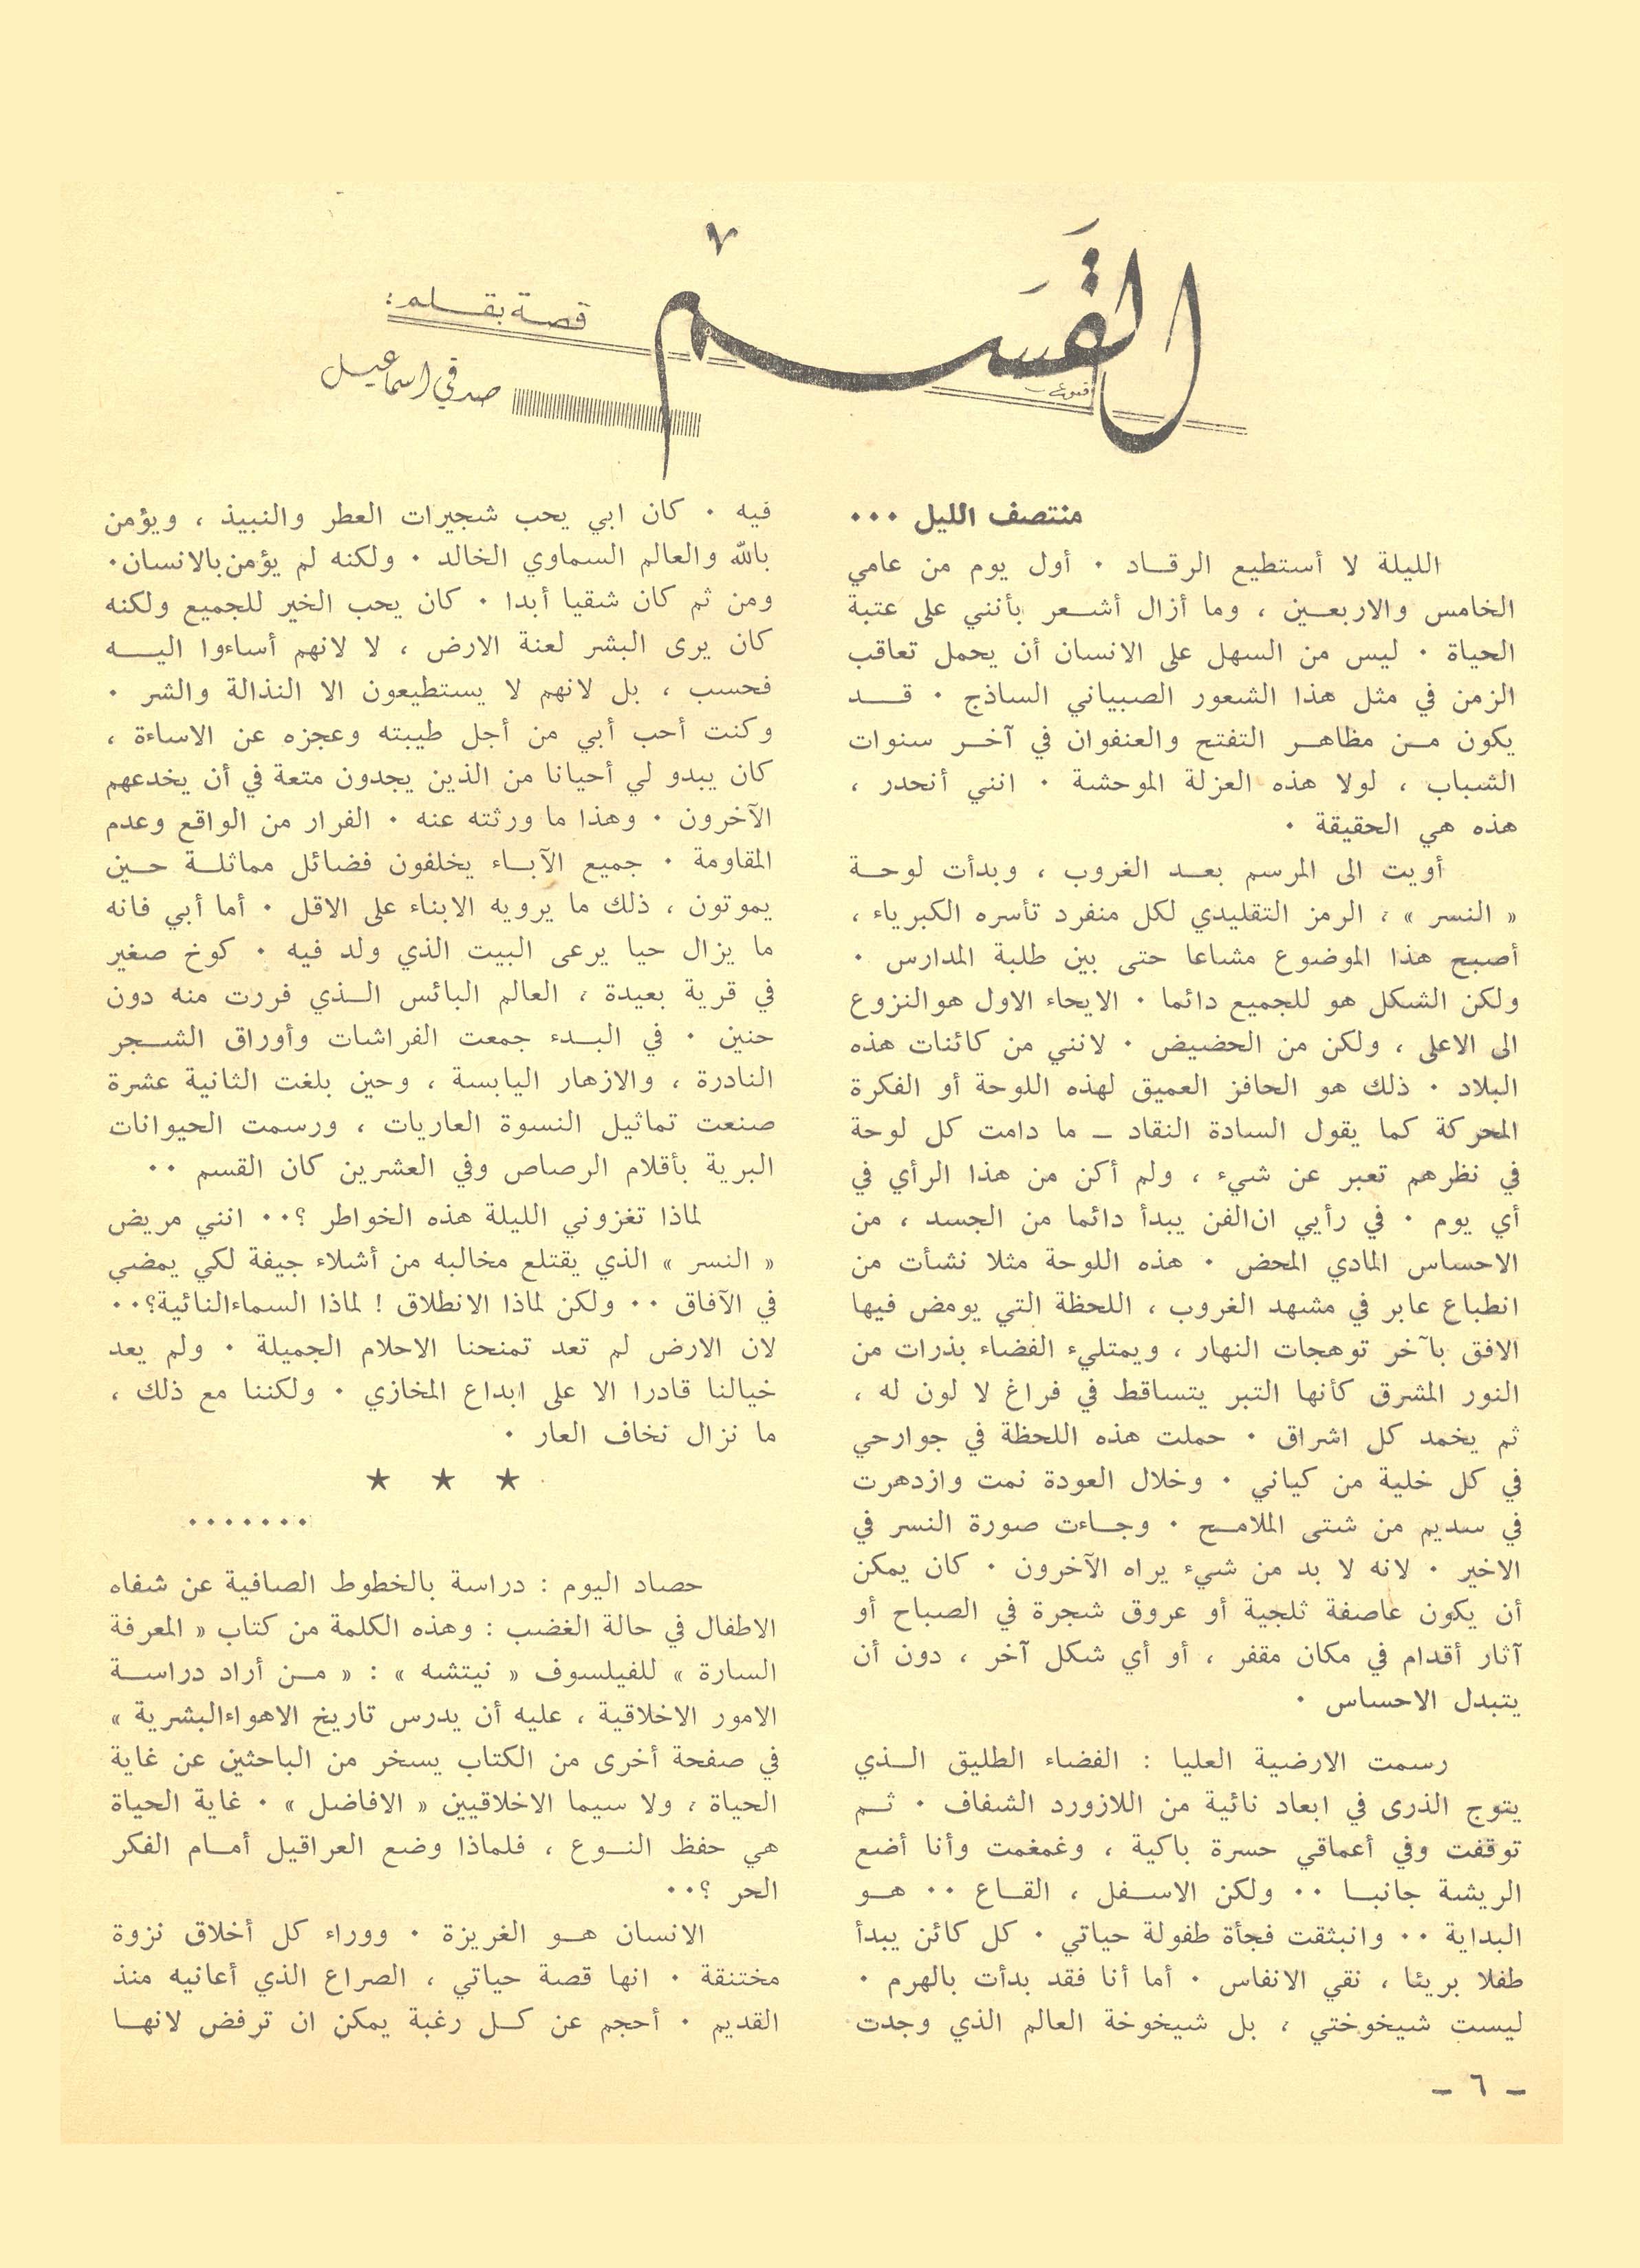 القَسَم
قصة بقلم:
صدقي اسماعيل
منتصف الليل ٠٠٠
الليلة لا أستطيع الرقاد ٠ أول يوم من عامي
الخامس والاربعين ، وما أزال أشعر بأنني على عتبة
الحياة ٠ ليس من السهل على الانسان أن يحمل تعاقب
الزمن في مثل هذا الشعور الصبياني الساذج ٠ قد
يكون من مظاهر التفتح والعنفوان في آخر سنوات
الشباب ، لولا هذه العزلة الموحشة ٠ انني أنحدر ،
هذه هي الحقيقة ٠
أويت الى المرسم بعد الغروب ، وبدأت لوحة
« النسر » ، الرمز التقليدي لكل منفرد تأسره الكبرياء ،
أصبح هذا الموضوع مشاعا حتى بين طلبة المدارس ٠
ولكن الشكل هو للجميع دائما ٠ الايحاء الاول هو النزوع
الى الاعلى ، ولكن من الحضيض ٠ لانني من كائنات هذه
البلاد ٠ ذلك هو الحافز العميق لهذه اللوحة أو الفكرة
المحركة كما يقول السادة النقاد ــ ما دامت كل لوحة
في نظرهم تعبر عن شيء ، ولم أكن من هذا الرأي في
أي يوم ٠ في رأيي ان الفن يبدأ دائما من الجسد ، من
الاحساس المادي المحض ٠ هذه اللوحة مثلا نشأت من
انطباع عابر في مشهد الغروب ، اللحظة التي يومض فيها
الافق بآخر توهجات النهار ، ويمتليء الفضاء بذرات من
النور المشرق كأنها التبر يتساقط في فراغ لا لون له ،
ثم يخمد كل اشراق ٠ حملت هذه اللحظة في جوارحي
في كل خلية من كياني ٠ وخلال العودة نمت وازدهرت
في سديم من شتى الملامح ٠ وجاءت صورة النسر في
الاخير ٠ لانه لا بد من شيء يراه الآخرون ٠ كان يمكن
أن يكون عاصفة ثلجية أو عروق شجرة في الصباح أو
آثار أقدام في مكان مقفر ، أو أي شكل آخر ، دون أن
يتبدل الاحساس ٠
رسمت الارضية العليا : الفضاء الطليق الذي
يتوج الذرى في ابعاد نائية من اللازورد الشفاف ٠ ثم
توقفت وفي أعماقي حسرة باكية ، وغمغمت وأنا أضع
الريشة جانبا ٠٠ ولكن الاسفل ، القاع ٠٠ هو
البداية ٠٠ وانبثقت فجأة طفولة حياتي ٠ كل كائن يبدأ
طفلا بريئا ، نقي الانفاس ٠ أما أنا فقد بدأت بالهرم ٠
ليست شيخوختي ، بل شيخوخة العالم الذي وجدت
فيه ٠ كان ابي يحب شجيرات العطر والنبيذ ، ويؤمن
بالله والعالم السماوي الخالد ٠ ولكنه لم يؤمن بالانسان٠
ومن ثم كان شقيا أبدا ٠ كان يحب الخير للجميع ولكنه
كان يرى البشر لعنة الارض ، لا لانهم أساءوا اليه
فحسب ، بل لانهم لا يستطيعون الا النذالة والشر ٠
وكنت أحب أبي من أجل طيبته وعجزه عن الاساءة ،
كان يبدو لي أحيانا من الذين يجدون متعة في أن يخدعهم
الآخرون ٠ وهذا ما ورثته عنه ٠ الفرار من الواقع وعدم
المقاومة ٠ جميع الآباء يخلفون فضائل مماثلة حين
يموتون ، ذلك ما يرويه الابناء على الاقل ٠ أما أبي فانه
ما يزال حيا يرعى البيت الذي ولد فيه ٠ كوخ صغير
في قرية بعيدة ، العالم البائس الذي فررت منه دون
حنين ٠ في البدء جمعت الفراشات وأوراق الشجر
النادرة ، والازهار اليابسة ، وحين بلغت الثانية عشرة
صنعت تماثيل النسوة العاريات ، ورسمت الحيوانات
البرية بأقلام الرصاص وفي العشرين كان القسم ٠٠
لماذا تغزوني الليلة هذه الخواطر ؟٠٠ انني مريض
« النسر » الذي يقتلع مخالبه من أشلاء جيفة لكي يمضي
في الآفاق ٠٠ ولكن لماذا الانطلاق ! لماذا السماء النائية؟٠٠
لان الارض لم تعد تمنحنا الاحلام الجميلة ٠ ولم يعد
خيالنا قادرا الا على ابداع المخازي ٠ ولكننا مع ذلك ،
ما نزال نخاف العار ٠
★ ★ ★
٠٠٠٠٠٠٠
حصاد اليوم : دراسة بالخطوط الصافية عن شفاه
الاطفال في حالة الغضب : وهذه الكلمة من كتاب « المعرفة
السارة » للفيلسوف « نيتشه » : « من أراد دراسة
الامور الاخلاقية ، عليه أن يدرس تاريخ الاهواء البشرية »
في صفحة أخرى من الكتاب يسخر من الباحثين عن غاية
الحياة ، ولا سيما الاخلاقيين « الافاضل » ٠ غاية الحياة
هي حفظ النوع ، فلماذا وضع العراقيل أمام الفكر
الحر ؟٠٠
الانسان هو الغريزة ٠ ووراء كل أخلاق نزوة
مختنقة ٠ انها قصة حياتي ، الصراع الذي أعانيه منذ
القديم ٠ أحجم عن كل رغبة يمكن ان ترفض لانها
ــ ٦ ــ